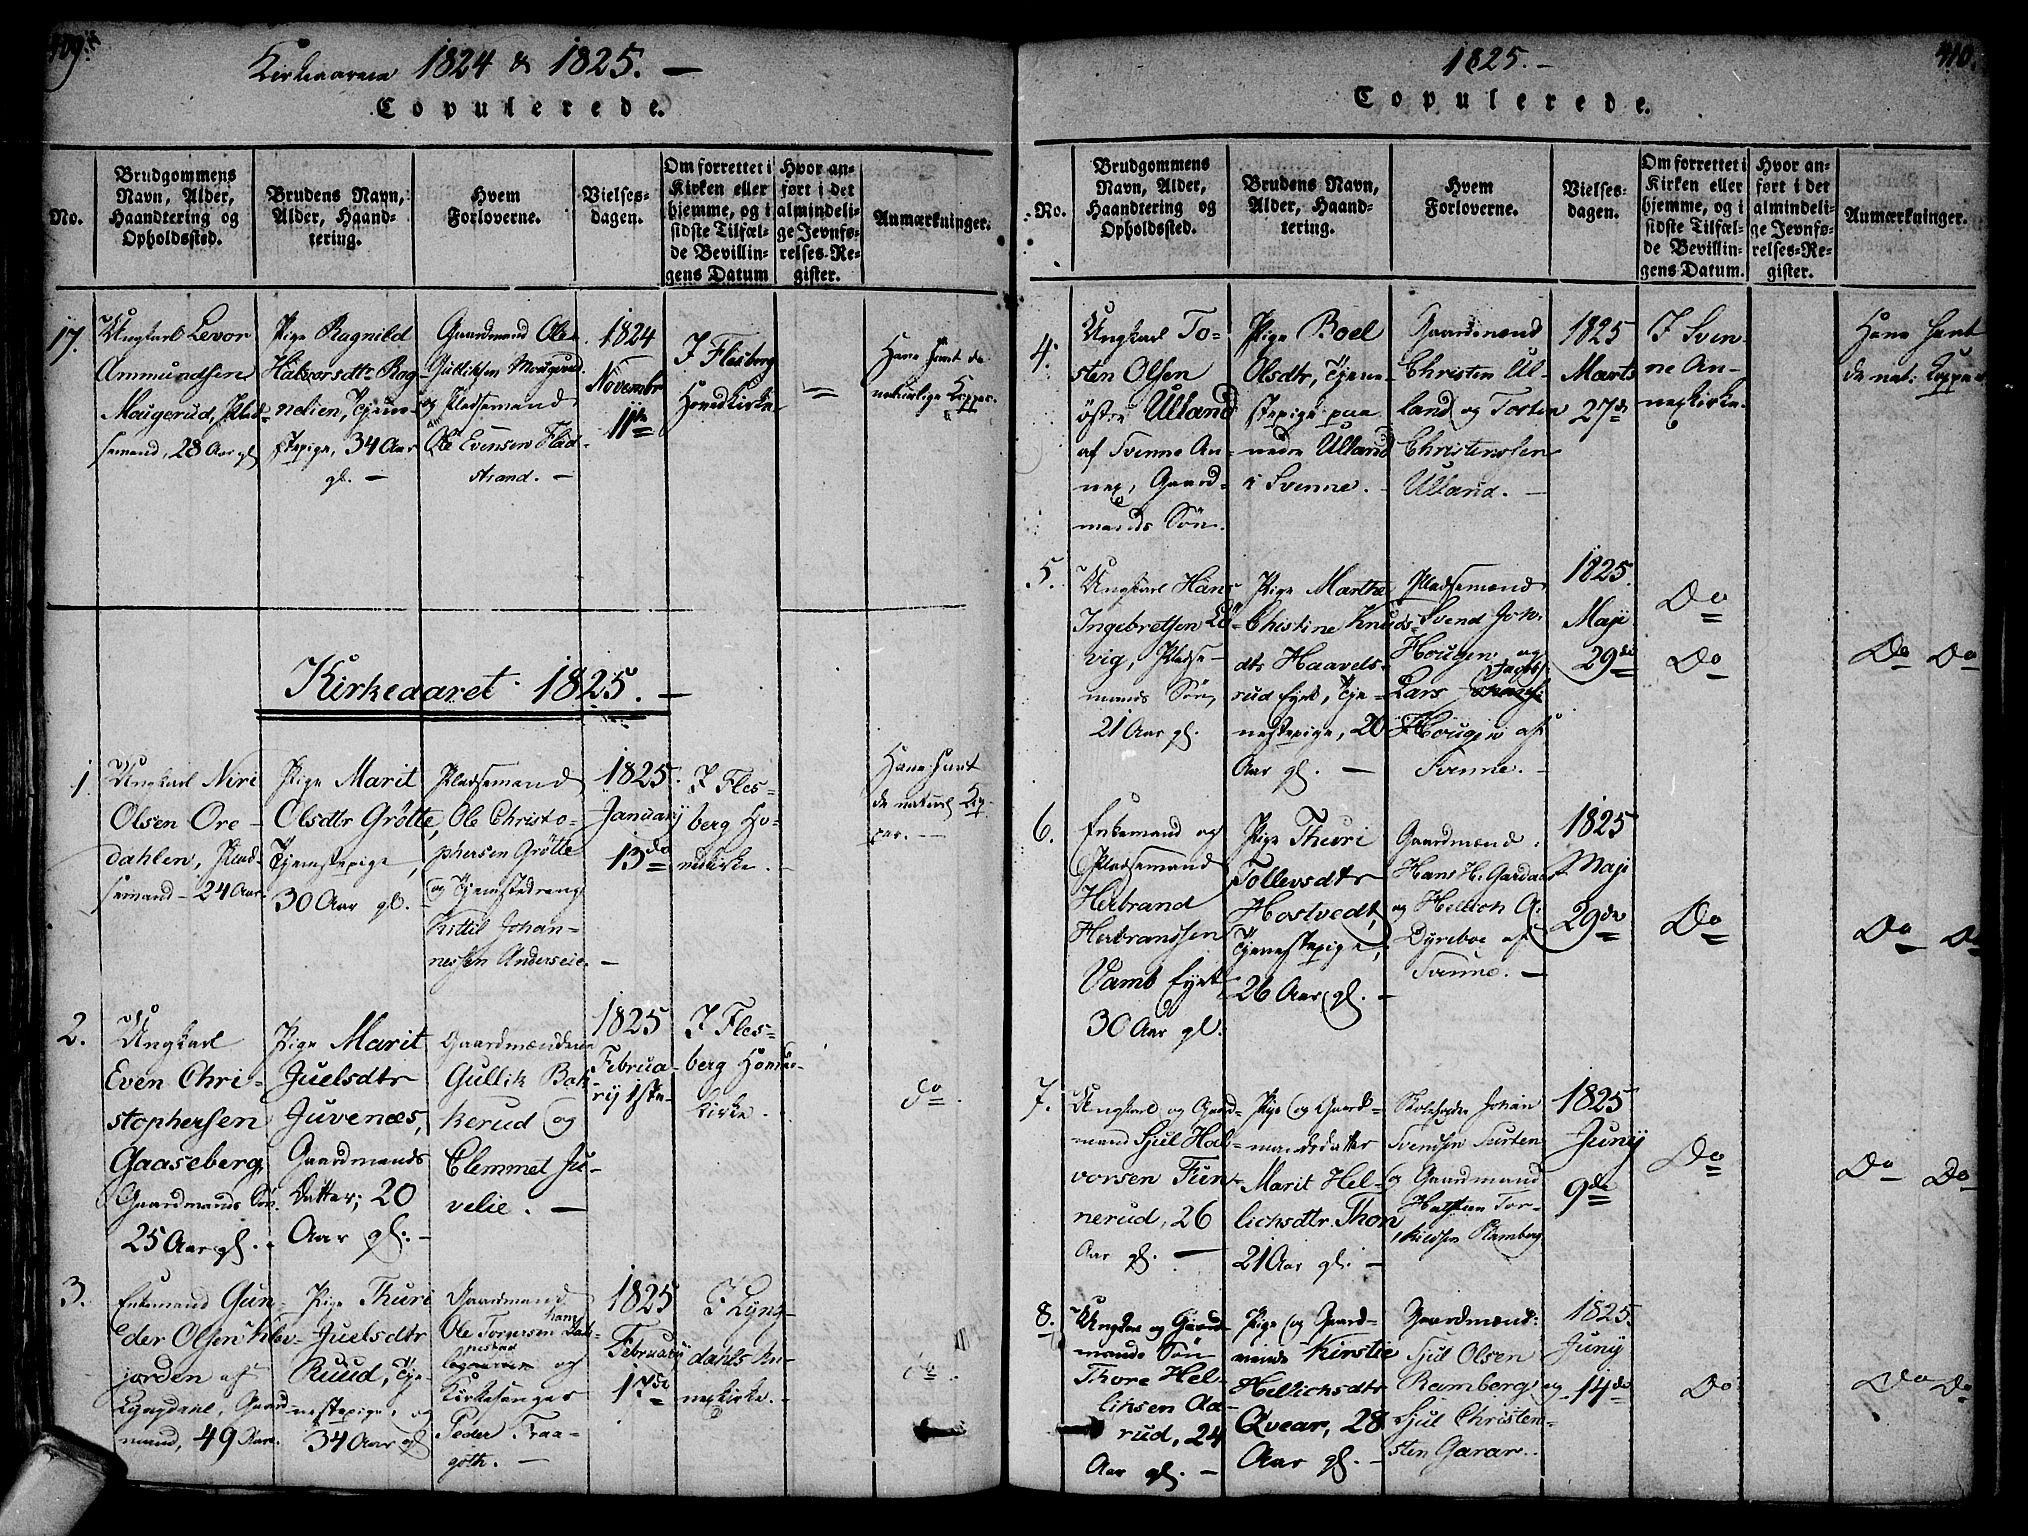 409.
Kirkeaaren 1824 & 1825. —
Copulerede.
No.
Brudgommens
Navn, Alder,
Haandtering og
Opholdssted.
Brudens Navn,
Alder, Haand-
tering.
Hvem
Forloverne.
Vielses-
dagen.
Om forrettet i
Kirken eller
hjemme, og i
sidste Tilfæl-
de Bevillin-
gens Datum
Hvor an-
ført i det
almindeli-
ge Jevnfø-
relses-Re-
gister.
Anmærkninger.
17.
Ungkarl Levor
Ammundsen
Maugerud, Plad-
semand, 28 Aar gl
Pige Ragnild
Halvorsdtr Rag-
nelien, Tjene-
stepige, 34 Aar
gl. —
Gaardmand Ole
Gulliksen
og Pladsemand
Ole Evensen Flad-
strand. —
1824
Novembr
11te
I Flesberg
Hovedkirke
Have havt de
naturlige Kopper.
Kirkeaaret 1825. —
1.
Ungkarl Neri
Olsen Ore-
dahlen, Plad-
semand – 24 Aar.
Pige Marit
Olsdtr Grøtte,
Tjenestepige,
30 Aar gl. —
Pladsemand
Ole Christo-
phersen Grøtte
og Tjenestedreng
Kittil Johan-
nessen Anderseie. —
1825.
January
13de
I Fles-
berg Ho-
vedkirke. —
Have havt
de naturl. Kop-
per. —
2.
Ungkarl
Even Chri-
stophersen
Gaaseberg,
Gaardmands Søn
25 Aar gl. -
Pige Marit
Juelsdtr
Juvenæs,
Gaardmands
Datter, 20
Aar gl. —
Gaardmændene
Gullik Bak-
kerud og
Clemmet Ju-
velie. —
1825
Februa-
rij 1ste
I Fles-
berg Hoved-
kirke.
Do.
3.
Enkemand Gun-
der Olsen Klev-
jorden af
Lyngdal, Gaard-
mand, 49 Aar.
Pige Thuri
Juelsdtr
Ruud, Tje-
nestepige,
34 Aar gl
Gaardmand
Ole Torgersen
og
Kirkesanger
Peder Traa-
goth. —
1825
Februarij
17de
I Lyng-
dahls An-
nexkirke. —
Do.
410.
1825. —
Copulerede.
No.
Brudgommens
Navn, Alder,
Haandtering og
Opholdssted.
Brudens Navn,
Alder, Haand-
tering.
Hvem
Forloverne.
Vielses-
dagen.
Om forrettet i
Kirken eller
hjemme, og i
sidste Tilfæl-
de Bevillin-
gens Datum.
Hvor an-
ført i det
almindeli-
ge Jevnfø-
relses-Re-
gister.
Anmærkninger.
4.
Ungkarl To-
sten Olsen
östre Ulland
af Svenne An-
nex, Gaard-
mands Søn.
Pige Boel
Olsdtr, Tjene-
stepige paa
nedre Ulland
i Svenne. —
Gaardmænd
Christen Ul-
land og Torsten
Christenssen
Ulland. —
1825
Marts
27de
I Sven-
ne An-
nexkirke.
Have havt
de nat: Kopper
5.
Ungkarl Hans
Ingebretsen Lö-
vig, Pladse-
mands Søn,
21 Aar gl.
Pige Marthe
Christine Knuds-
dtr Haavels-
rud Eyet, Tje-
nestepige, 20
Aar gl. —
Pladsemænd
Svend Joh.
Hougen, og
Lars
Hougen af
Svenne. —
1825.
Maji
29de
Do
Do
Do Do
6.
Enkemand og
Pladsemand
Herbrand
Herbranssen
Vamb Eyet,
30 Aar gl.
Pige Thuri
Tollevsdtr
Hostvedt,
Tjenestepige,
26 Aar gl. —
Gaardmænd:
Hans H. Gardaas
og Hellich A.
Dyreboe af
Svenne. —
1825
Maji
29de
Do
Do Do
7.
Ungkarl og Gaard-
mand Sjul Hal-
vorsen Fun-
nerud, 26
Aar gl. —
Pige og Gaard-
mandsdatter
Marit Hel-
lichsdtr. Thon
21 Aar gl. —
Skoleholder Johan
Svendsen Surten
og Gaardmand
Halsten Tor-
kildsen Ramberg
1825
Junij
9de
Do
Do Do
8.
Ungkarl og Gaard-
mands Søn
Thore Hel-
liksen Aa-
rud, 24
Aar gl. —
Pige og Gaard-
mands Kirstie
Hellichsdtr
Qvear, 28
Aar gl. —
Gaardmænd:
Sjul Olsen
Ramberg og
Sjul Christen-
sten Garar.
1825.
Junij
14de
Do
Do Do